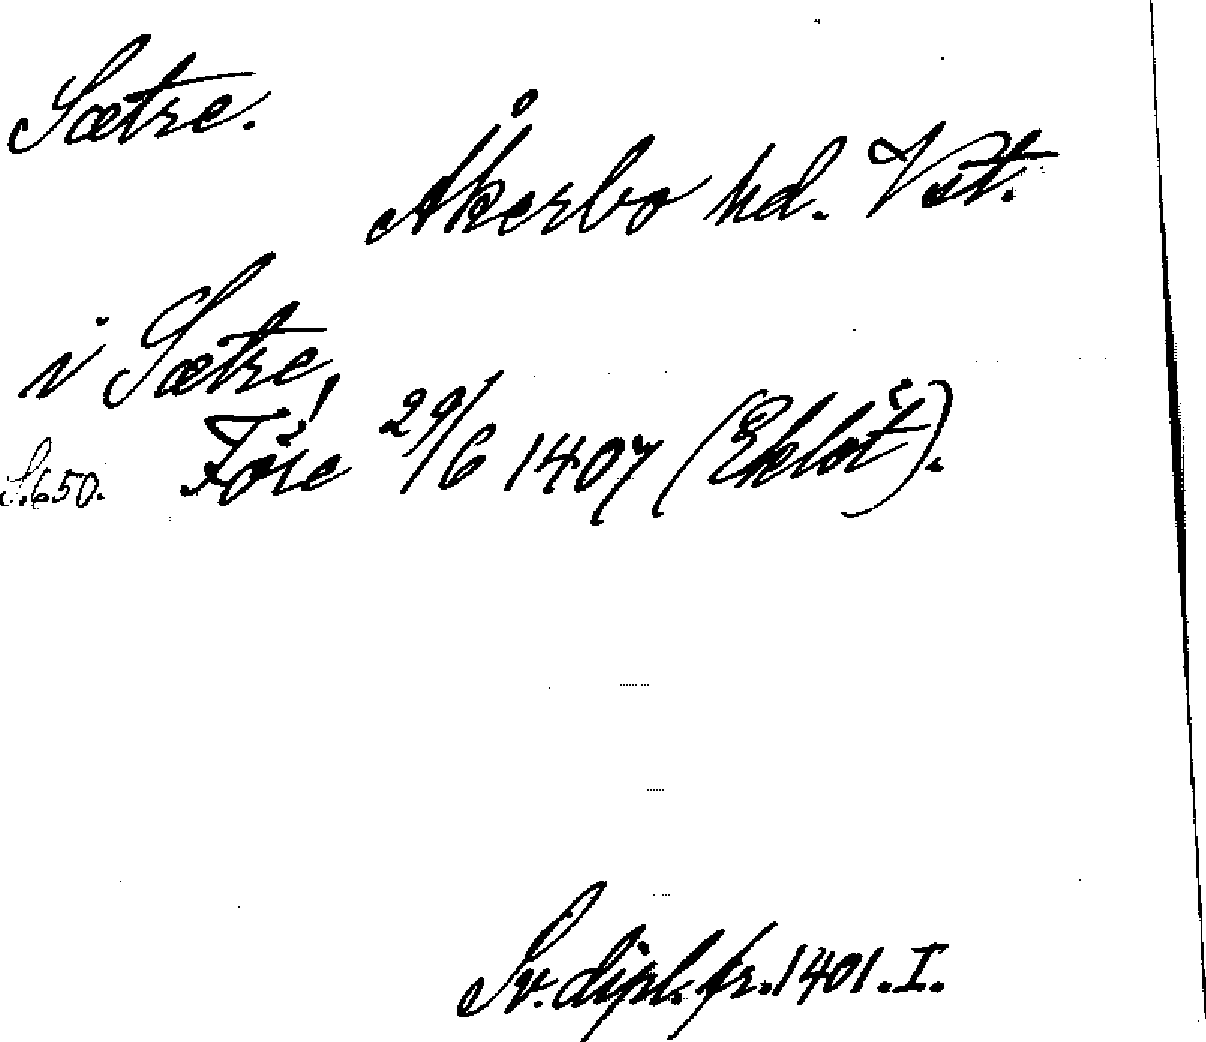 Sætre.
Åkerbo hd. Vstm.
i Sætre!
S.650. Före 29/6 1407 (Eklöt).
Sv. dipl. fr. 1401. I.